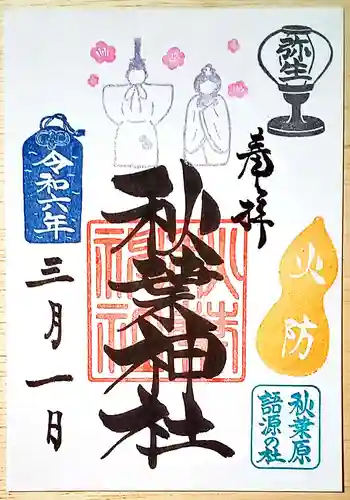 弥生
奉拝
秋葉神社
令和六年
三月一日
火防
秋葉原
語源の社